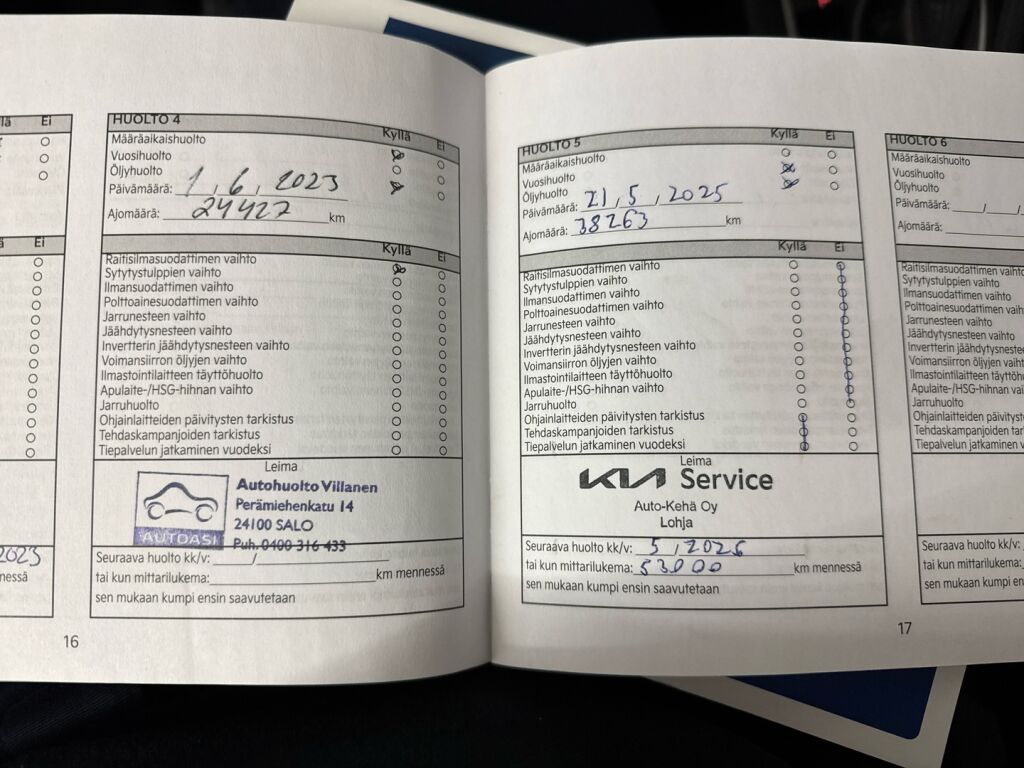 llä Ei
Ei
2023
nnessä
HUOLTO 4
Kyllä Ei
Määräaikaishuolto
Vuosihuolto
Öljyhuolto
Päivämäärä: 1, 6, 2023
Ajomäärä: 24427 km
Kyllä Ei
Raitisilmasuodattimen vaihto
Sytytystulppien vaihto
Ilmansuodattimen vaihto
Polttoainesuodattimen vaihto
Jarrunesteen vaihto
Jäähdytysnesteen vaihto
Invertterin jäähdytysnesteen vaihto
Voimansiirron öljyjen vaihto
Ilmastointilaitteen täyttöhuolto
Apulaite-/HSG-hihnan vaihto
Jarruhuolto
Ohjainlaitteiden päivitysten tarkistus
Tehdaskampanjoiden tarkistus
Tiepalvelun jatkaminen vuodeksi
Leima
AUTOASI
Autohuolto Villanen
Perämiehenkatu 14
24100 SALO
Puh. 0400 316 433
Seuraava huolto kk/v: /
tai kun mittarilukema: km mennessä
sen mukaan kumpi ensin saavutetaan
16
HUOLTO 5
Kyllä Ei
Määräaikaishuolto
Vuosihuolto
Öljyhuolto
Päivämäärä: 21, 5, 2025
Ajomäärä: 38263 km
Kyllä Ei
Raitisilmasuodattimen vaihto
Sytytystulppien vaihto
Ilmansuodattimen vaihto
Polttoainesuodattimen vaihto
Jarrunesteen vaihto
Jäähdytysnesteen vaihto
Invertterin jäähdytysnesteen vaihto
Voimansiirron öljyjen vaihto
Ilmastointilaitteen täyttöhuolto
Apulaite-/HSG-hihnan vaihto
Jarruhuolto
Ohjainlaitteiden päivitysten tarkistus
Tehdaskampanjoiden tarkistus
Tiepalvelun jatkaminen vuodeksi
Leima
KIA Service
Auto-Kehä Oy
Lohja
Seuraava huolto kk/v: 5, 2026
tai kun mittarilukema: 53000 km mennessä
sen mukaan kumpi ensin saavutetaan
17
HUOLTO 6
Määräaikaishuolto
Vuosihuolto
Öljyhuolto
Päivämäärä: / /
Ajomäärä:
Raitisilmasuodattimen vaihto
Sytytystulppien vaihto
Ilmansuodattimen vaihto
Polttoainesuodattimen va
Jarrunesteen vaihto
Jäähdytysnesteen vaihto
Invertterin jäähdytysneste
Voimansiirron öljyjen vaih
Ilmastointilaitteen täyttöh
Apulaite-/HSG-hihnan vai
Jarruhuolto
Ohjainlaitteiden päivityst
Tehdaskampanjoiden tar
Tiepalvelun jatkaminen v
Seuraava huolto kk/v:
tai kun mittarilukema:
sen mukaan kumpi ensi